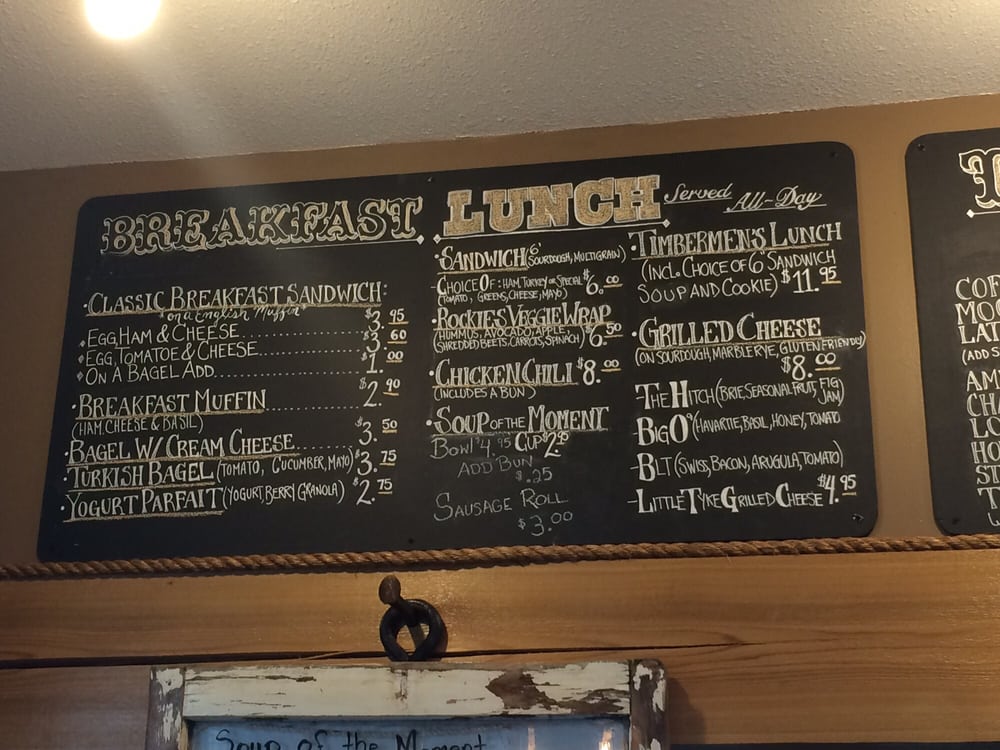 BREAKFAST
·CLASSIC BREAKFAST SANDWICH:
*on a English Muffin*
EGG, HAM & CHEESE.......... $3.95
EGG, TOMATOE & CHEESE.......... $3.60
ON A BAGEL ADD.......... $1.00
·BREAKFAST MUFFIN.......... $2.90
(HAM, CHEESE & BASIL)
·BAGEL W/ CREAM CHEESE.......... $3.50
·TURKISH BAGEL (TOMATO, CUCUMBER, MAYO) $3.75
·YOGURT PARFAIT (YOGURT, BERRY GRANOLA) $2.75
LUNCH Served All-Day
·SANDWICH (6" SOURDOUGH, MULTIGRAIN)
-CHOICE OF: HAM, TURKEY or SPECIAL $6.00
(TOMATO, GREENS, CHEESE, MAYO)
·ROCKIES VEGGIE WRAP
(HUMMUS, AVOCADO, APPLE, $6.50
(SHREDDED BEETS, CARROTS, SPINACH)
·CHICKEN CHILI $8.00
(INCLUDES A BUN)
·SOUP OF THE MOMENT
Bowl $4.95 CUP $2.95
ADD BUN
$.25
SAUSAGE ROLL
$3.00
·TIMBERMEN'S LUNCH
(INCL. CHOICE OF 6" SANDWICH
SOUP AND COOKIE) $11.95
·GRILLED CHEESE
(ON SOURDOUGH, MARBLE RYE, GLUTEN FRIENDLY)
$8.00
-THE HITCH (BRIE, SEASONAL FRUIT, FIG JAM)
-BIG O (HAVARTIE, BASIL, HONEY, TOMATO
-BLT (SWISS, BACON, ARUGULA, TOMATO)
-LITTLE TYKE GRILLED CHEESE $4.95
COF
MO
LAT
(ADD S
AM
CHA
LO
HO
ST
Soup of the Moment